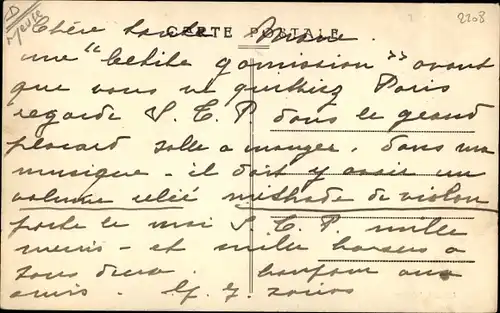 2208
D Meuse
CARTE POSTALE
Chère tante
une "petite comission" avant
que vous ne quittiez Paris
regarde S. T. P. dans le grand
placard salle a manger, dans ma
musique - il doit y avoir un
volume relié méthode de violon
porte le moi S. T. P. mille
mercis - et mille baisers a
vous deux. bonjour aux
amis.